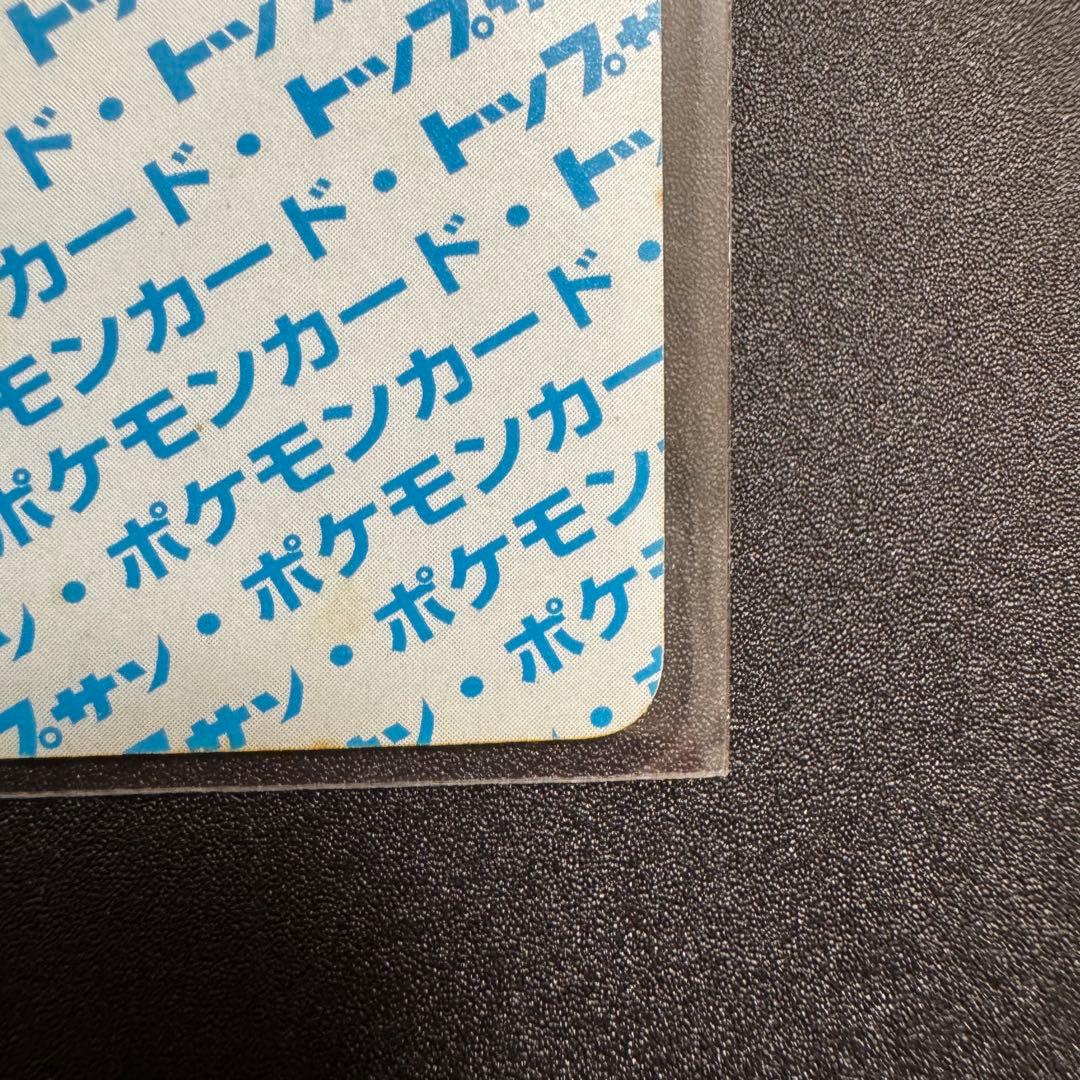 ト
ド・トッ
カード・トップ
モンカード・トップサ
ポケモンカード・ト
ン・ポケモンカード・
プサン・ポケモンカー
サン・ポケモン
ン・ポケ
・